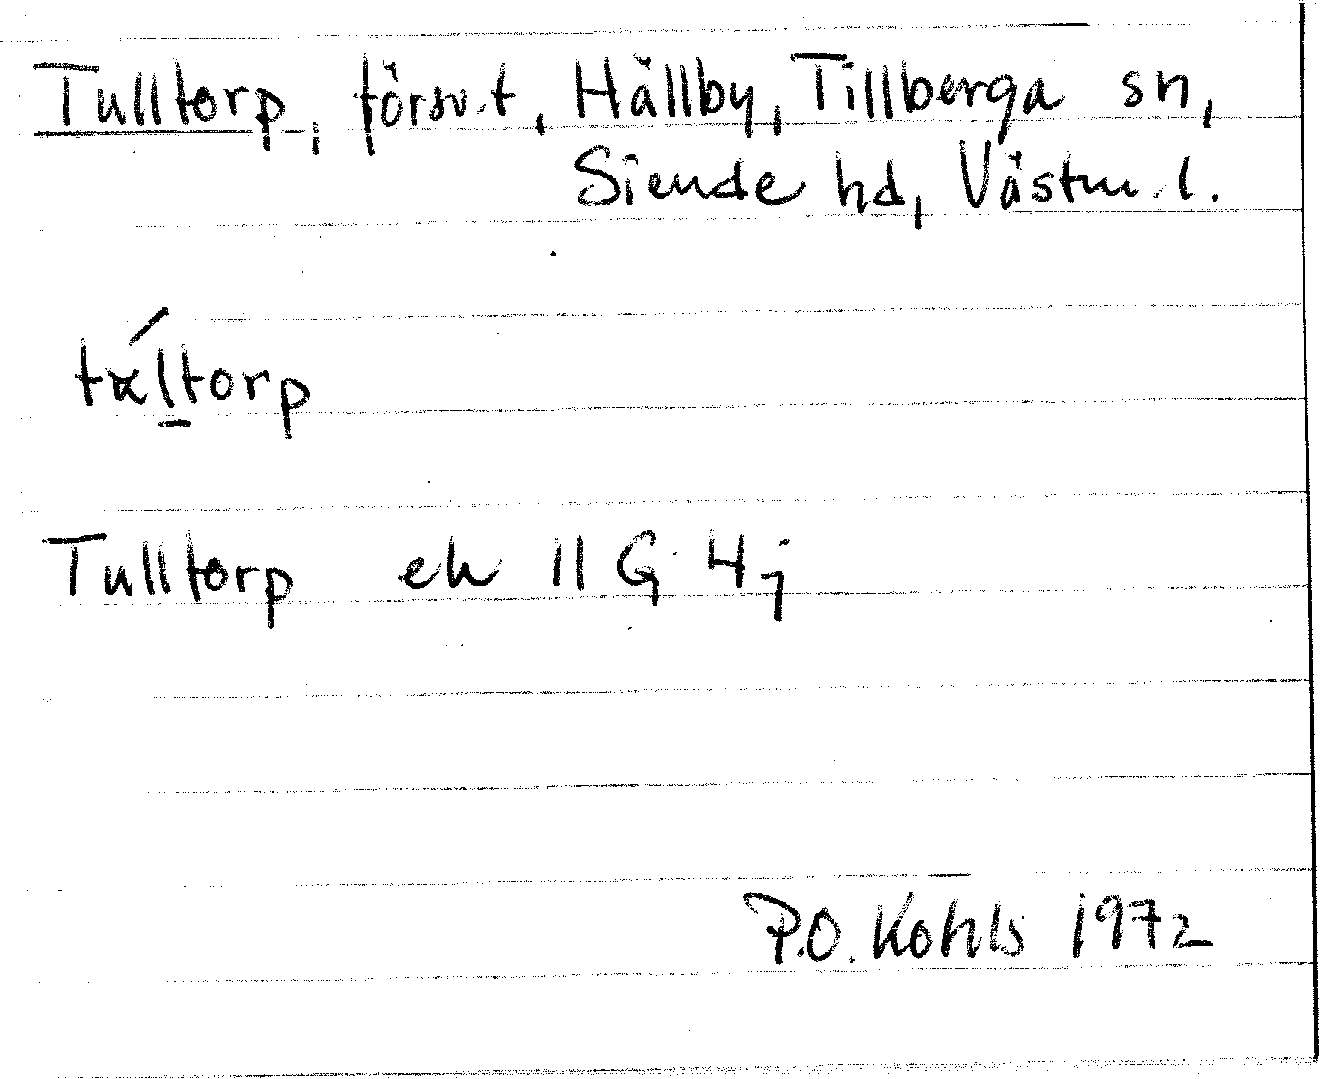 Tulltorp, försv.t, Hällby, Tillberga sn,
Siende hd, Västm.l.
Tulltorp ek 11 G 4j
P.O. Kohls 1972